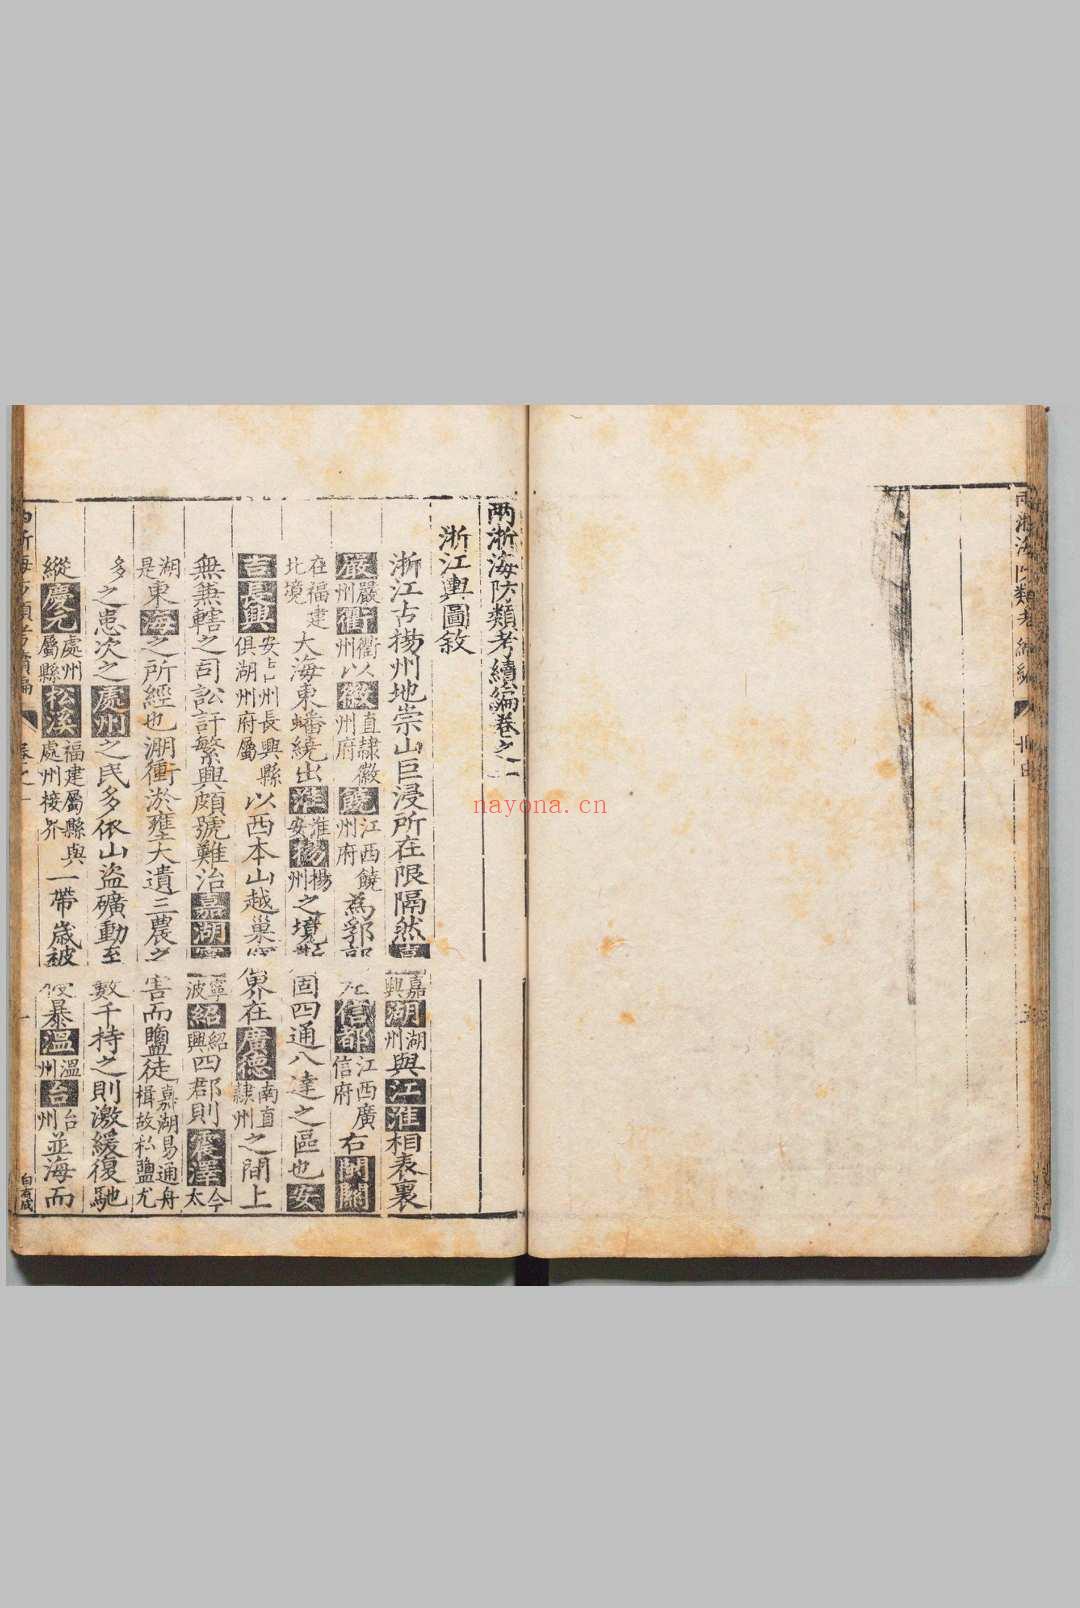 兩浙海防類考續編卷之一
浙江輿圖敘
浙江古揚州地崇山巨浸所在限隔然嘉嘉興湖湖州與江淮相表裏
嚴嚴州衢衢州以徽直隸徽州府饒江西饒州府為郛郭信都江西廣信府右閩關
在福建北境大海東蟠繞出淮淮安揚揚州之境固四通八達之區也安
吉長興安吉州長興縣俱湖州府屬以西本山越巢界在廣德南直隸州之間上
無兼轄之司訟訐繁興頗號難治嘉湖寧寧波紹紹興四郡則震澤今太
湖是東海之所經也潮衝淤壅大遺三農之害而鹽徒嘉湖易通舟楫故私鹽尤
多之患次之處州之民多依山盜礦動至數千持之則激緩復馳
縱慶元處州屬縣松溪福建屬縣與處州接界一帶歲被侵暴溫溫州台台州並海而
白有成
nayona.cn